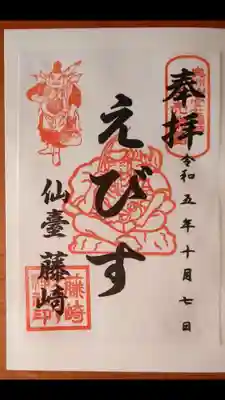 奉拝
令和五年十月七日
えびす
仙臺 藤崎
藤崎